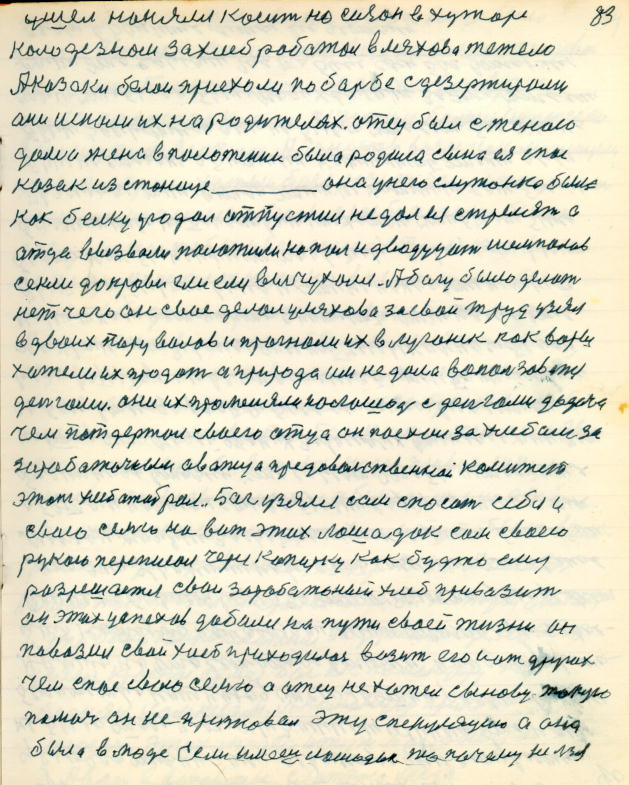 83
ушел наняли косит на сезон в хутор
колодезной за хлеб работои в ляхова тетело
А казаки белои приехоли по барбе с дезертироми
они искали их на родителях. отец был с женою
дома жена в положении была родила сына ея спос
казак из станице ________ она у него служонко была
как белку угодал отпустил недал ея стрелят а
отца вызвали положили на пол и двадцат шомполов
секли до крови ели ели вычухоли. А болу было делат
нет чего он свое делал у ляхова за свой труд узял
в двоих пару валов и прогнали их в луганск как воры
хотели их продат а природа им недала вопользоватця
денгами. они их променяли на лошод с денгами
чем потдержал своего отца он поехал за хлебом за
заработочным а ватца предоволственной комитет
этот хлеб отобрал.. Баг узялса сам спосат себя и
своею семю на вот этих лошадок сам своею
рукою переписал чере копирку как будто ему
разрешаетя свой заработоный хлеб привазит
он этих успехов добалси на пути своей жизни он
повозил свой хлеб приходилос возит его и от других
чем спос свою семю а отец не хотел сынову такую
помоч он не признавал эту спекуляцию а она
была в моде Если имееш лошадок то почему не взя